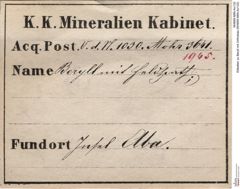 K. K. Mineralien Kabinet.
Acq. Post. V. d. N. 1030. Mohs 3641.
1965.
Name Beryll mit Feldspath,
Fundort Insel Elba.